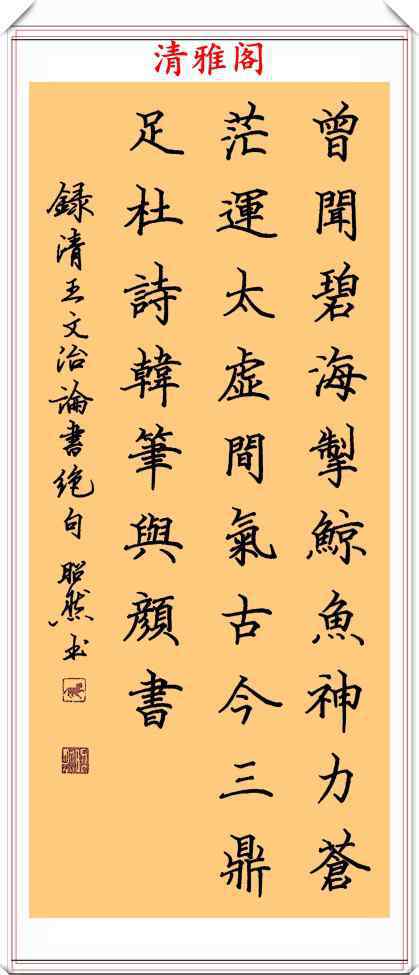 清雅阁
曾聞碧海掣鯨魚神力蒼
茫運太虛間氣古今三鼎
足杜詩韓筆與顏書
録清王文治論書絶句 昭然书